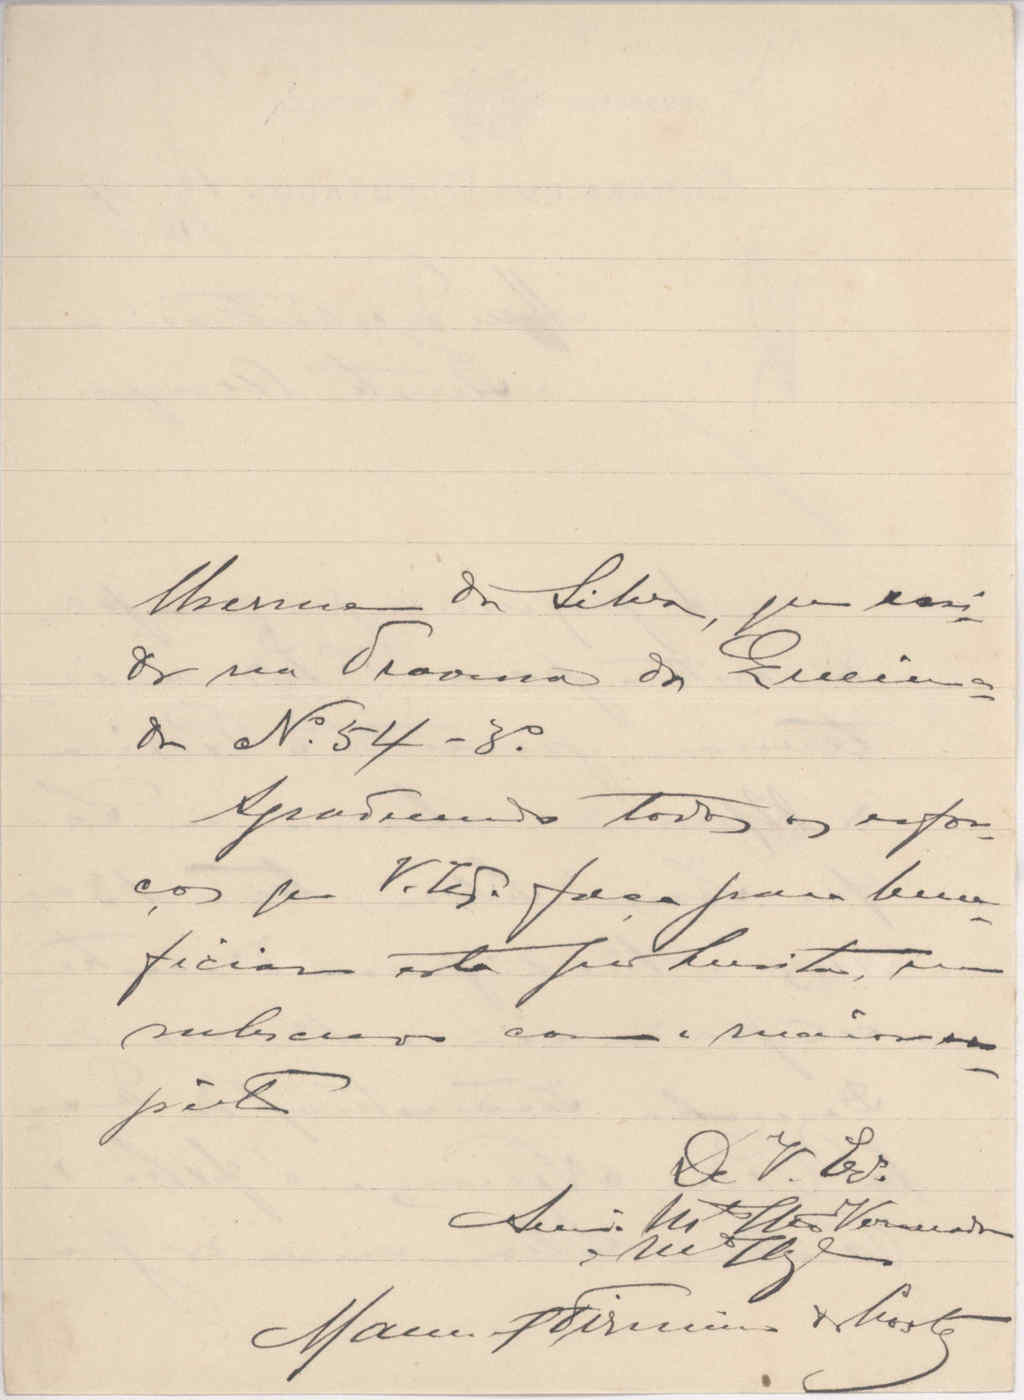 da Silva, que resi-
de na Travessa da Queima-
da Nº. 54 - 3º.
Agradecendo todos os esfor-
ços que V. Exª. faça para bene-
ficiar esta
subscrevo com a maior es-
De V. Exª.
Mtº Venerador
e Mtº Obgº
Manuel Firmino da Costa